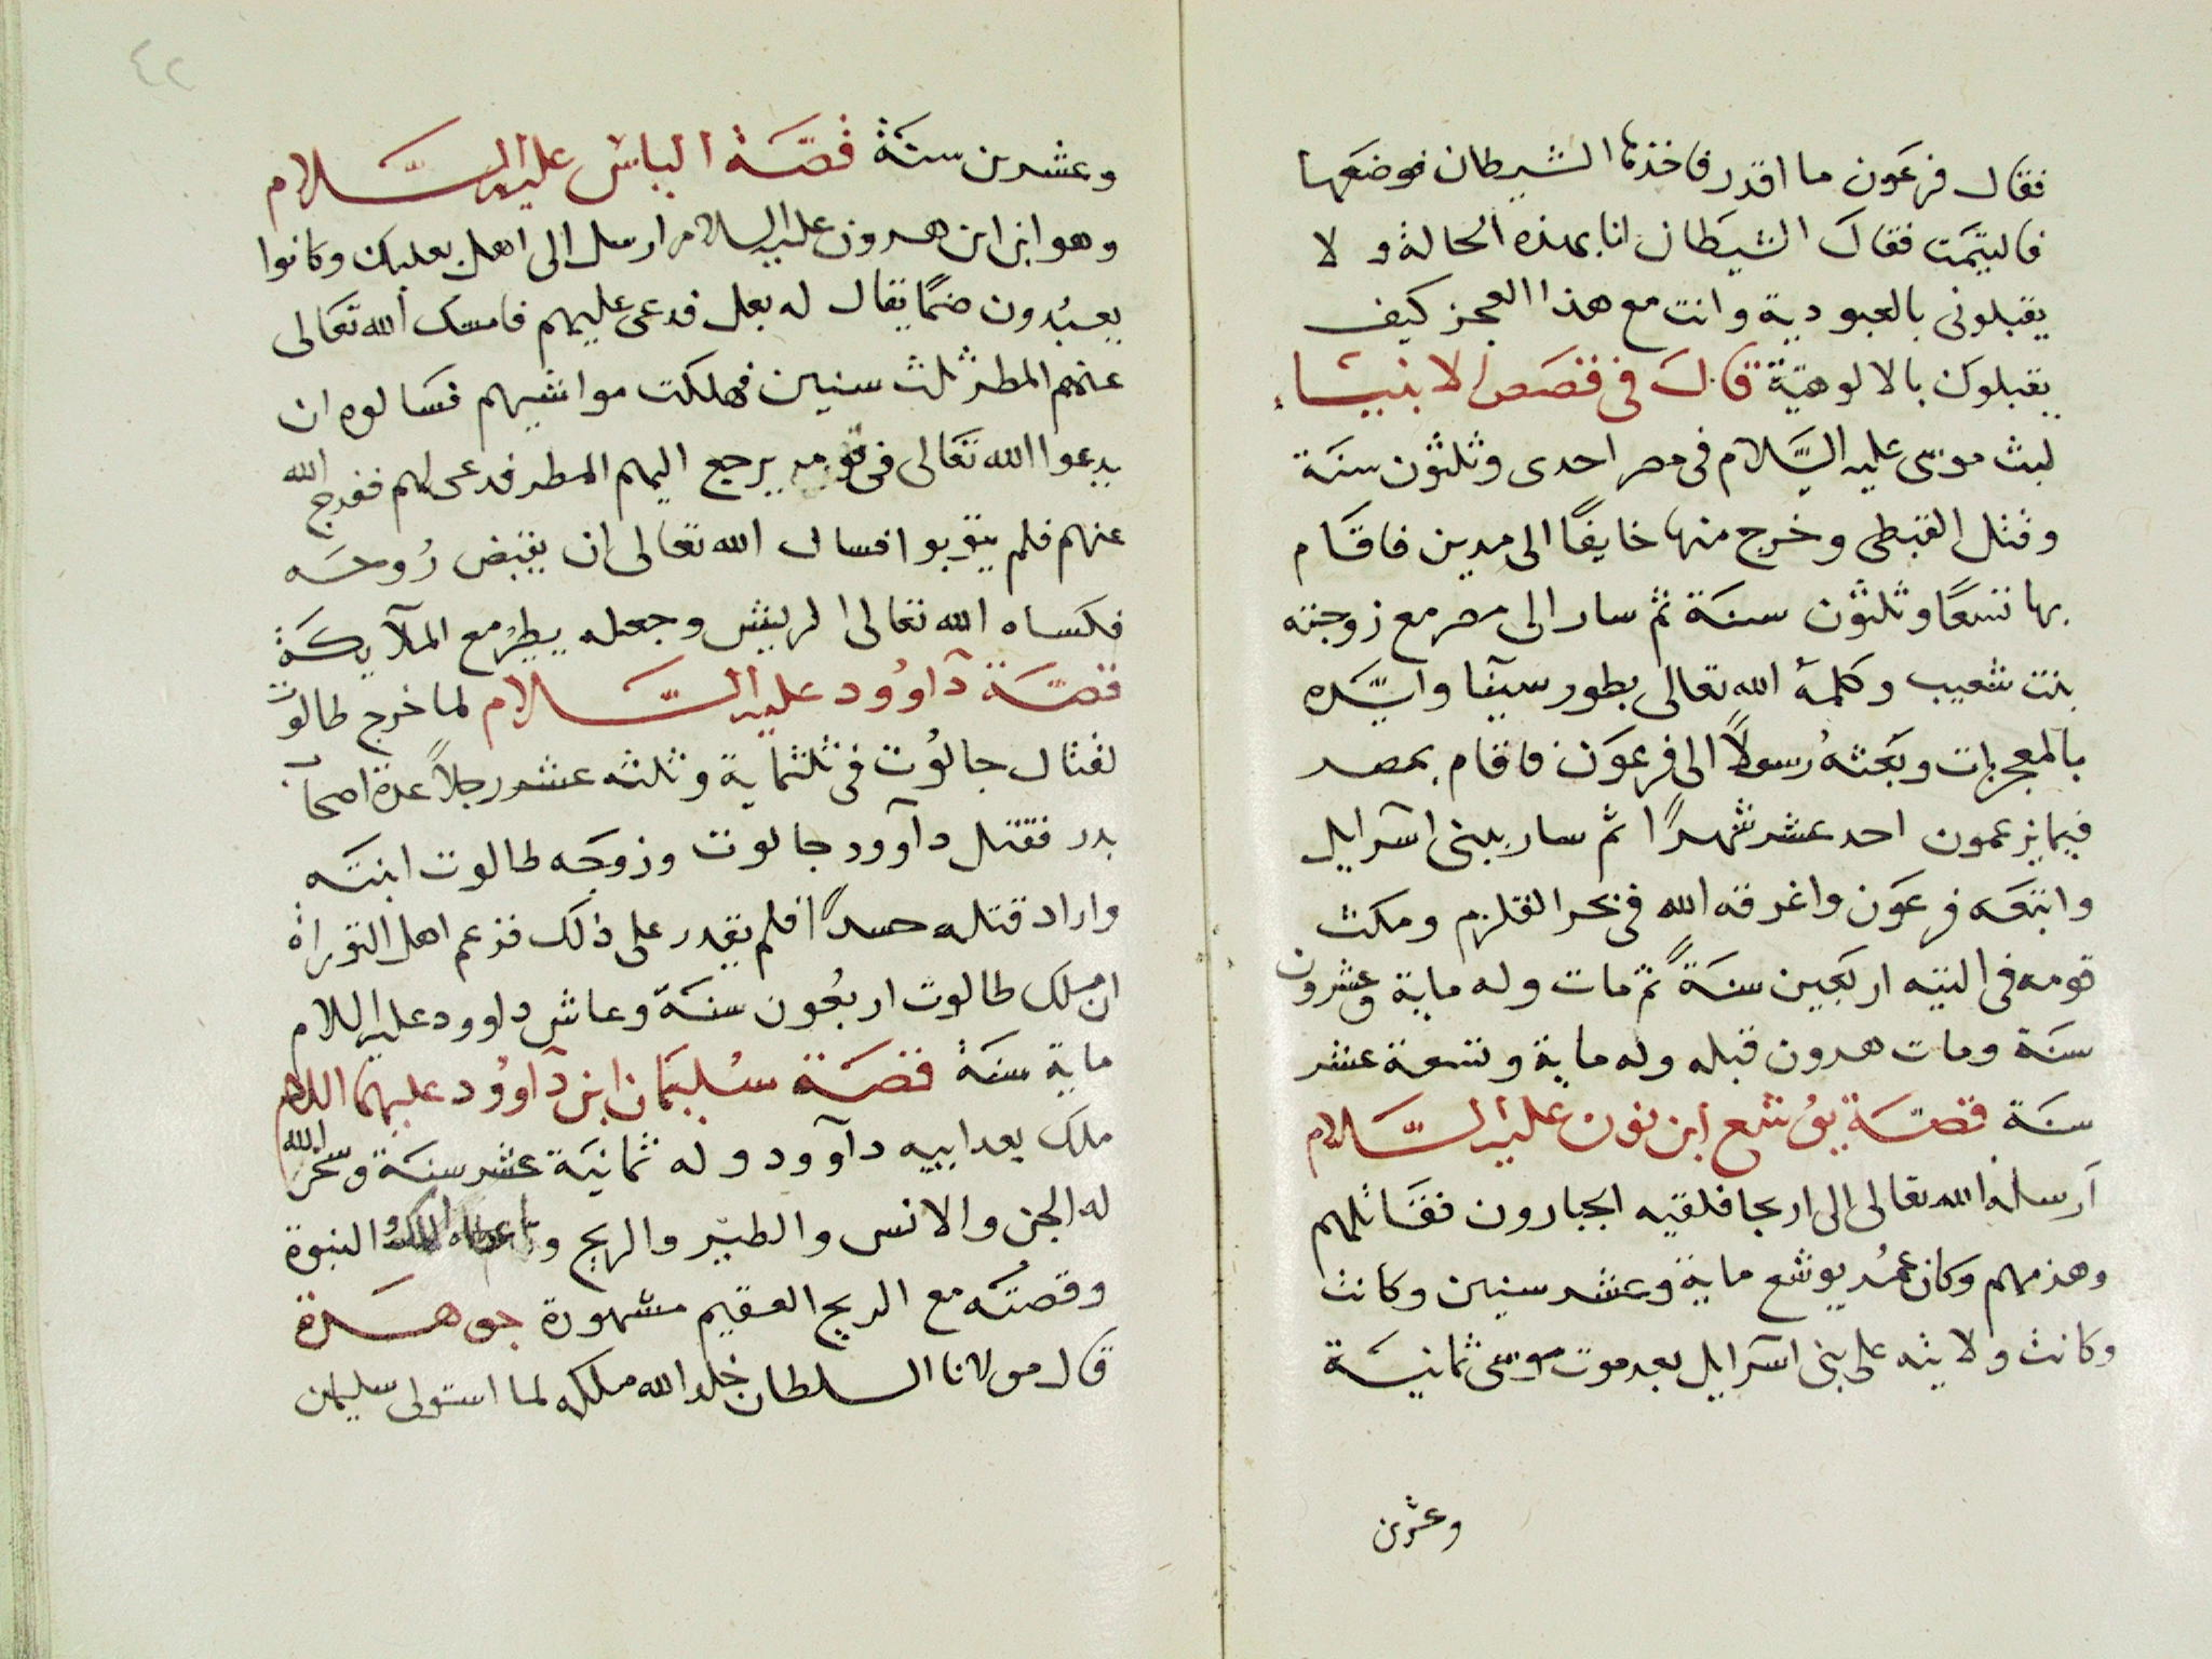 فقال فرعون ما اقدر فاخذها الشيطان فوضعها
فالتيمت فقال الشيطان انا بهذه الحالة و لا
يقبلونى بالعبودية وانت مع هذا العجز كيف
يقبلوك بالالوهيّة قال فى قصص الانبياء
لبث موسى عليه السَّلام فى مصر احدى وثلثون سنة
وقتل القبطى وخرج منها خايفًا الى مدين فاقام
بها تسعًا وثلثون سنة ثم سار الى مصر مع زوجته
بنت شعيب وكلمهُ الله تعالى بطور سيآ وايّده
بالمعجزات وبعثهُ رسولاً الى فرعون فاقام بمصر
فيما يزعمون احد عشر شهرًا ثم سار ببنى اسرآيل
واتبعه فرعون واغرقه الله فى بحر القلزم ومكث
قومه فى التيه اربعين سنةً ثم مات وله ماية وعشرون
سنة ومات هرون قبله وله ماية وتسعة عشر
سنة قصّة يوشع ابن نون عليه السَّلام
ارسله الله تعالى الى اريحا فلقيه الجبارون فقاتلهم
وهزمهم وكان عمُر يوشع ماية وعشر سنين وكانت
وكانت ولايته على بنى اسرآيل بعد موت موسى ثمانية
وعشرين
٤٢
وعشرين سنة قصّة الياس عليه السَّلام
وهو ابن ابن هرون عليه السلام ارسل الى اهل بعلبك وكانوا
يعبُدون صنمًا يقال له بعل فدعى عليهم فامسك الله تعالى
عنهم المطر ثلث سنين فهلكت مواشيهم فسالوه ان
يدعوا الله تعالى فى يرجع اليهم المطر فدعى لهم ففرج الله
عنهم فلم يتوبوا فسال الله تعالى ان يقبض رُوحه
فكساه الله تعالى الريش وجعله يطيرُ مع الملآيكة
قصّة دآوُود عليه السَّلام لما خرج طالوت
لقتال جالُوت فى ثلثماية وثلثه عشر رجلاً عدة اصحاب
بدر فقتل دآوود جالوت وزوجَه طالوت ابنته
واراد قتله حسدًا فلم يقدر على ذلك فزعم اهل التوراة
ان ملك طالوت اربعُون سنة وعاش داوود عليه السلام
ماية سنة قصّة سُليمان ابن دآوُود عليهما السلام
ملك بعد ابيه دآوود وله ثمانية عشر سنة وسخر الله
له الجن والانس والطيّر والريح واعطاه الملك والنبوة
وقصتُه مع الريح العقيم مشهورة جوهرة
قال مولانا السلطان خلد الله ملكه لما استولى سليمان